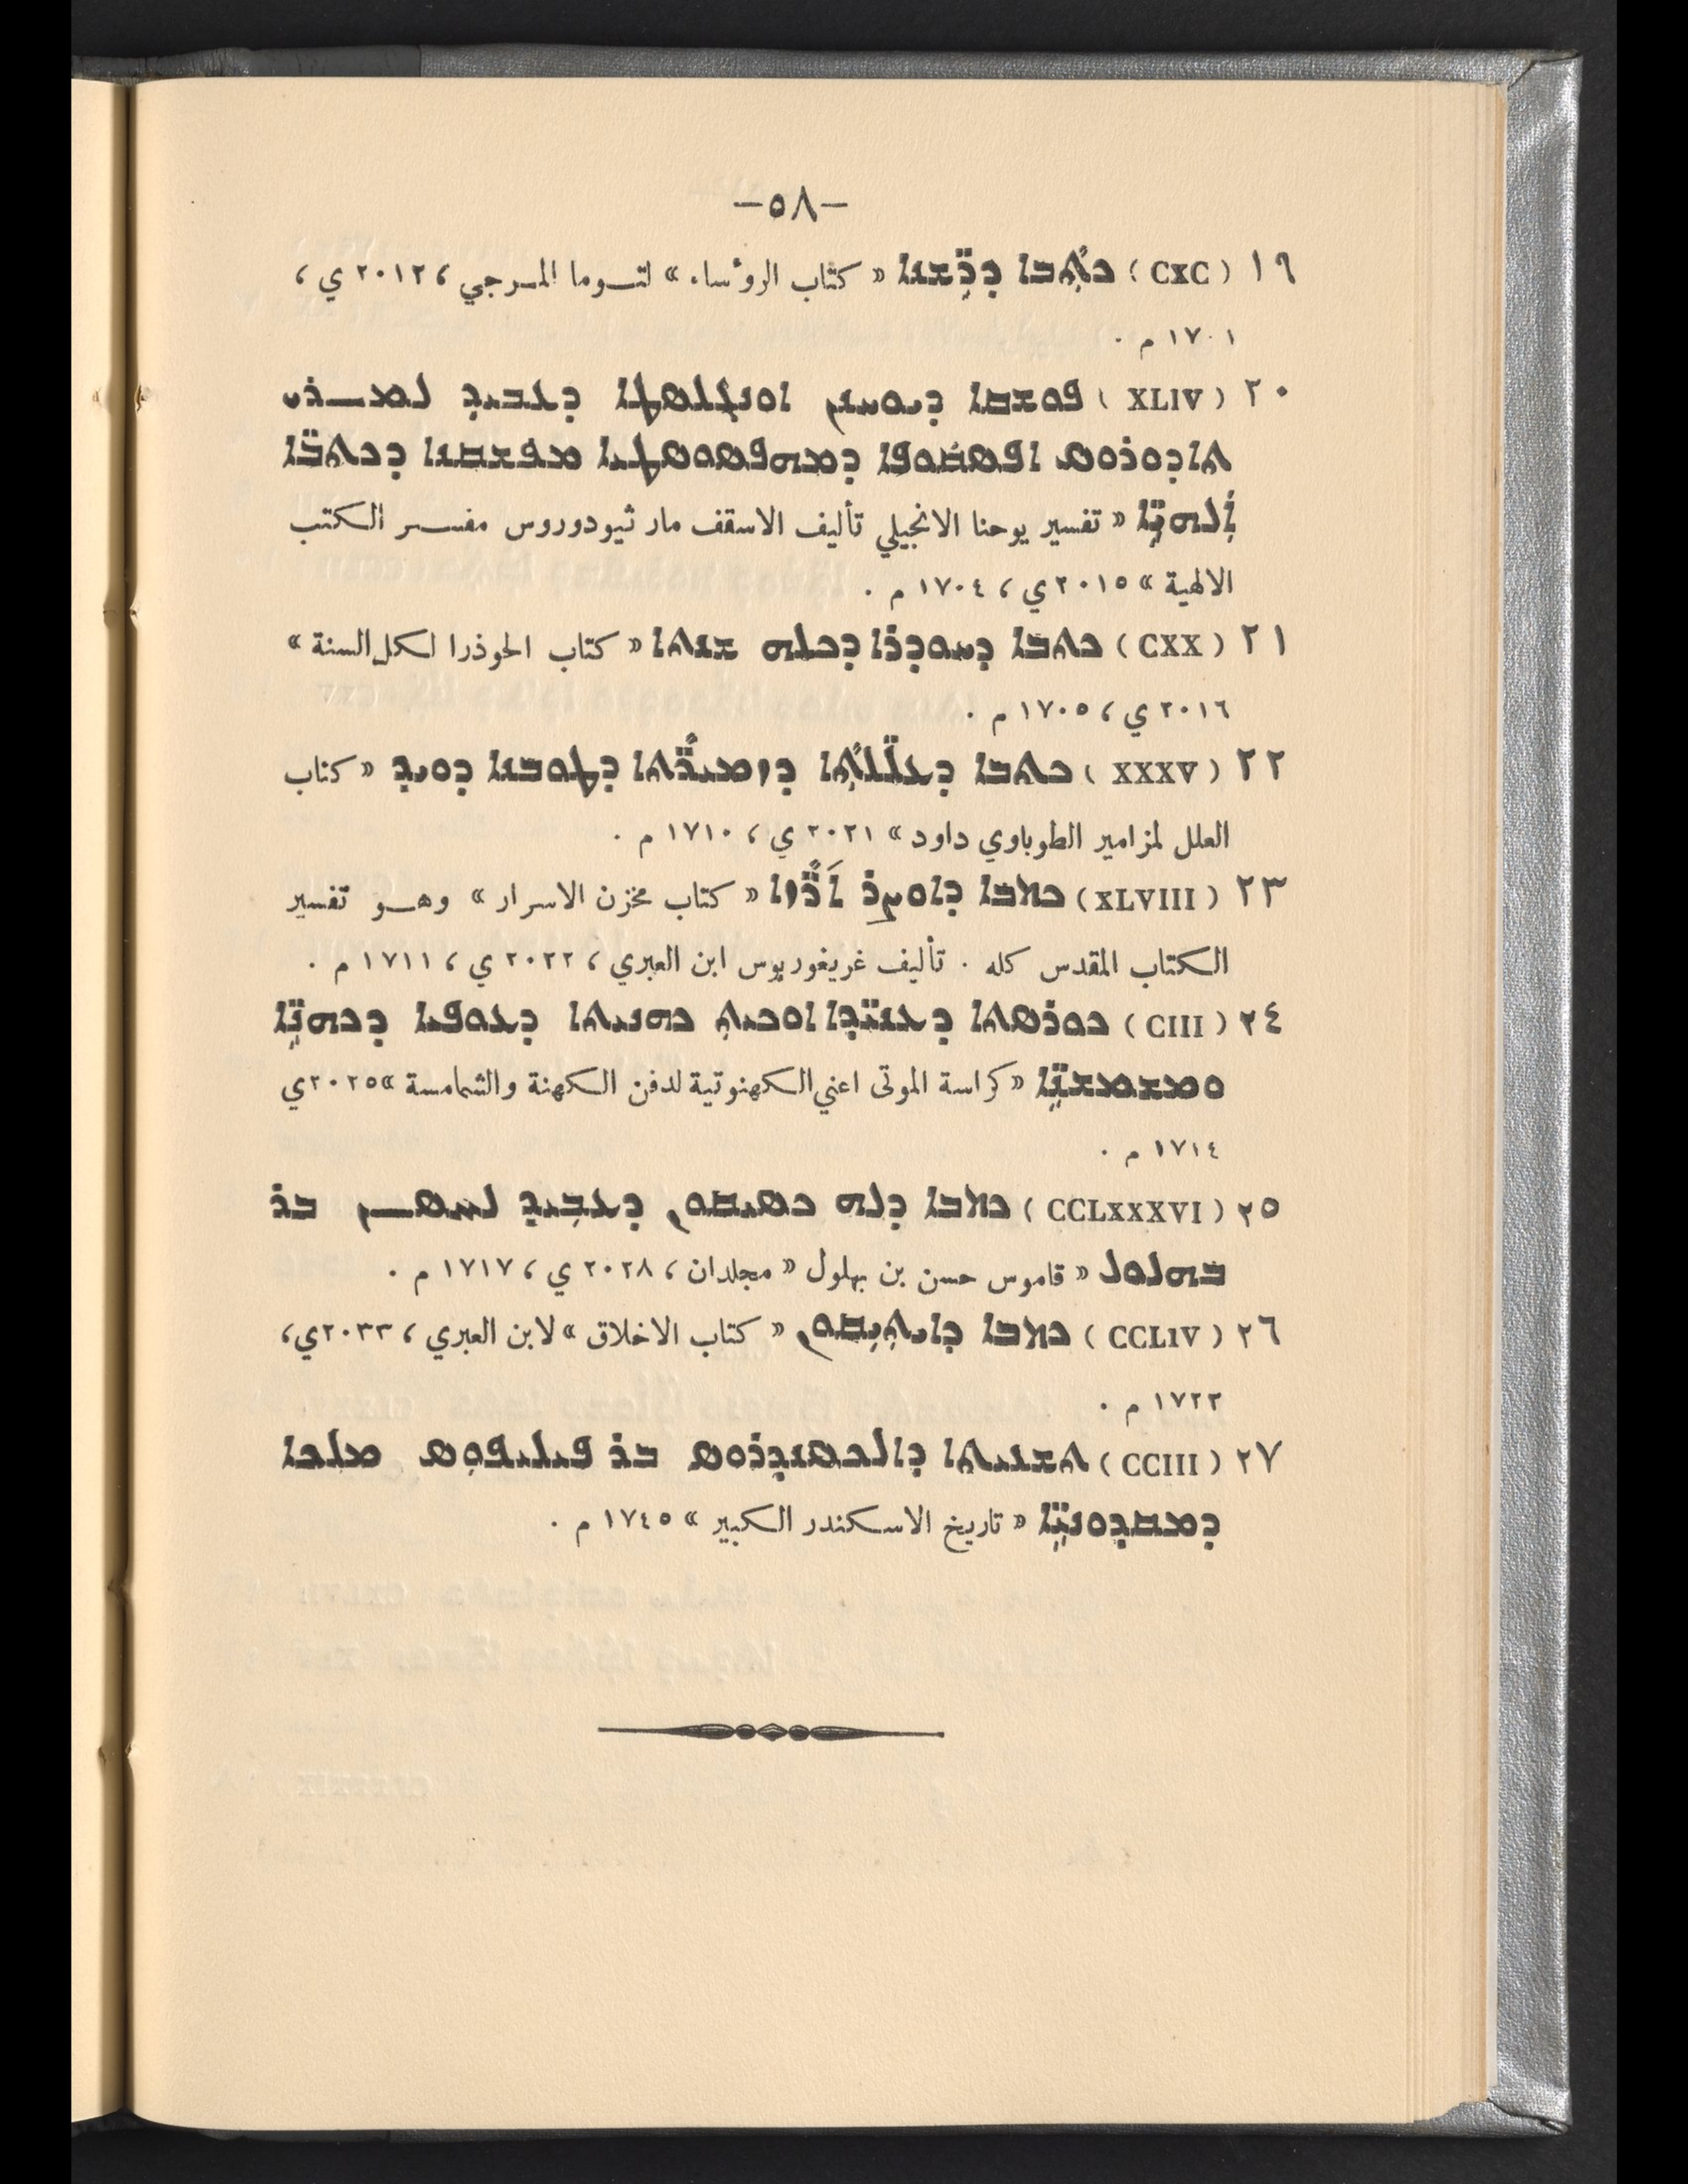 —٥٨—
١٩ (CXC) ܟܬܒܐ ܕܪ̈ܫܢܐ « كتاب الرؤساء » لتوما المرجي ، ٢٠١٢ ي ،
١٧٠١ م .
٢٠ (XLIV) ܦܘܫܩܐ ܕܝܘܚܢܢ ܐܘܢܓܠܣܛܐ ܕܥܒܝܕ ܠܡܪܝ
ܬܐܕܘܪܘܣ ܐܦܣܩܘܦܐ ܕܡܘܦܣܘܣܛܝܐ ܡܦܫܩܢܐ ܕܟܬܒ̈ܐ
ܐܠܗܝ̈ܐ « تفسير يوحنا الانجيلي تأليف الاسقف مار ثيودوروس مفسر الكتب
الالهية » ٢٠١٥ ي ، ١٧٠٤ م .
٢١ (CXX) ܟܬܒܐ ܕܚܘܕܪܐ ܕܟܠܗ ܫܢܬܐ « كتاب الحوذرا لكل السنة »
٢٠١٦ ي ، ١٧٠٥ م .
٢٢ (XXXV) ܟܬܒܐ ܕܥܠ̈ܠܬܐ ܕܙܡܝܪ̈ܬܐ ܕܛܘܒܢܐ ܕܘܝܕ « كتاب
العلل لمزامير الطوباوي داود » ٢٠٢١ ي ، ١٧١٠ م .
٢٣ (XLVIII) ܟܬܒܐ ܕܐܘܨܪ ܐܪ̈ܙܐ « كتاب مخزن الاسرار » وهو تفسير
الكتاب المقدس كله . تأليف غريغوريوس ابن العبري ، ٢٠٢٢ ي ، ١٧١١ م .
٢٤ (CIII) ܟܘܪܣܬܐ ܕܥܢܝ̈ܕܐ ܐܘܟܝܬ ܟܗܢܝܬܐ ܕܥܘܦܝܐ ܕܟܗܢ̈ܐ
ܘܡܫܡܫܢ̈ܐ « كراسة الموتى اعني الكهنوتية لدفن الكهنة والشمامسة » ٢٠٢٥ ي
١٧١٤ م .
٢٥ (CCLXXXVI) ܟܬܒܐ ܕܠܗ ܟܣܝܩܘܢ ܕܥܒܝܕ ܠܚܣܢ ܒܪ
ܒܗܠܘܠ « قاموس حسن بن بهلول « مجلدان ، ٢٠٢٨ ي ، ١٧١٧ م .
٢٦ (CCLIV) ܟܬܒܐ ܕܐܝܬܝܩܘܢ « كتاب الاخلاق » لابن العبري ، ٢٠٣٣ ي ،
١٧٢٢ م .
٢٧ (CCIII) ܬܫܥܝܬܐ ܕܐܠܟܣܢܕܪܘܣ ܒܪ ܦܝܠܝܦܘܣ ܡܠܟܐ
ܕܡܩܕܘܢܝ̈ܐ « تاريخ الاسكندر الكبير » ١٧٤٥ م .